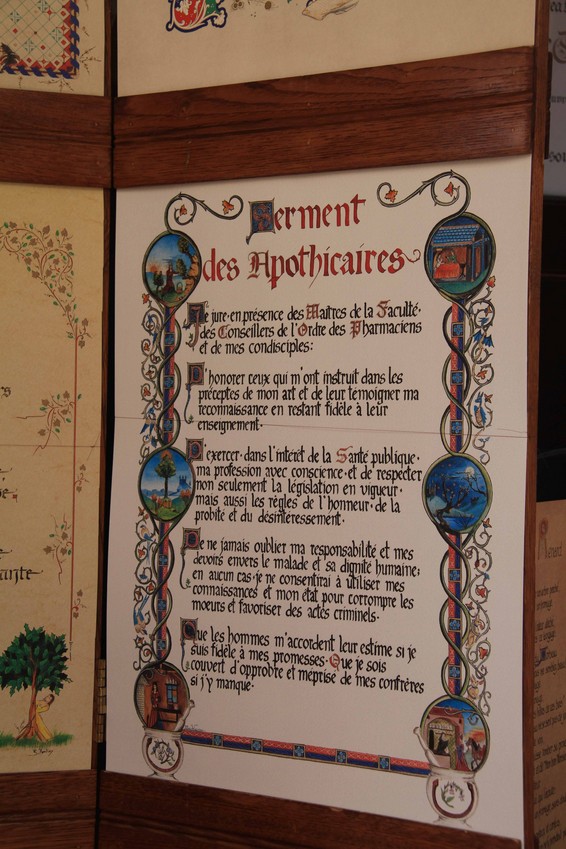 Serment
des Apothicaires
Je jure·en présence des Maîtres de la Faculté·
des Conseillers de l'Ordre des Pharmaciens
et de mes condisciples:
D'honorer ceux qui m'ont instruit dans les
préceptes de mon art et de leur témoigner ma
reconnaissance en restant fidèle à leur
enseignement·
D'exercer·dans l'intérêt de la Santé publique·
ma profession avec conscience·et de respecter
non seulement la législation en vigueur·
mais aussi les règles de l'honneur·de la
probité et du désintéressement·
De ne jamais oublier ma responsabilité et mes
devoirs envers le malade et sa dignité humaine;
en aucun cas·je ne consentirai à utiliser mes
connaissances et mon état pour corrompre les
moeurs et favoriser des actes criminels·
Que les hommes m'accordent leur estime si je
suis fidèle à mes promesses·Que je sois
couvert d'opprobre et méprisé de mes confrères
si j'y manque·